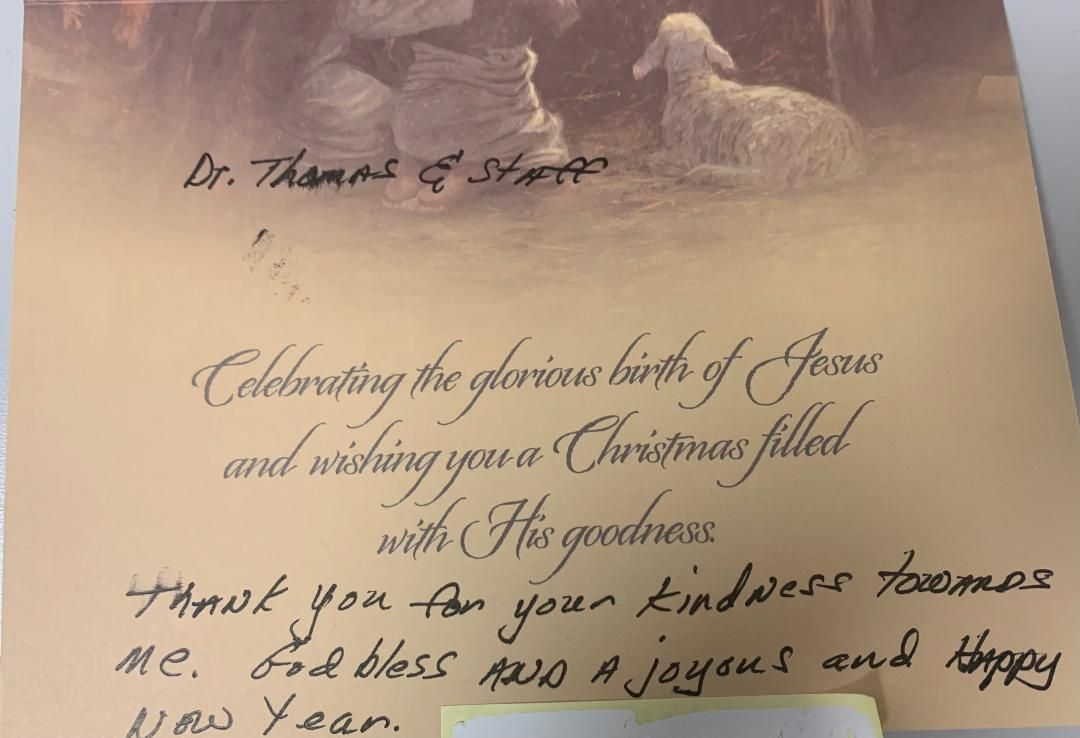 Dr. Thomas & Staff
Celebrating the glorious birth of Jesus
and wishing you a Christmas filled
with His goodness.
Thank you for your kindness towards
me. God bless AND A joyous and Happy
New Year.